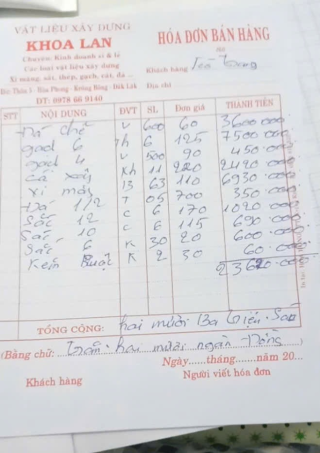 VẬT LIỆU XÂY DỰNG
KHOA LAN
Chuyên: Kinh doanh sỉ & lẻ
Các loại vật liệu xây dựng
Xi măng, sắt, thép, gạch, cát, đá ...
Hòa Phong - Krông Bông - Đăk Lăk
ĐT: 0978 66 9140
HÓA ĐƠN BÁN HÀNG
Khách hàng
Địa chỉ
STT NỘI DUNG ĐVT SL Đơn giá THÀNH TIỀN
Đá chẻ V 600 60 3600000
gạch 6 th 6 125 7500 000
gạch 4 V 500 90 450.000
Cát xây Kh 11 220 2420.000
Xi măng B 63 110 6930.000
Đá 1/2 T 05 700 350.000
Sắt 12 C 6 170 1020.000
Sắt 10 C 6 115 690.000
Sắt 6 K 30 20 600.000
Kẽm buộc K 2 30 60.000
23620.000
TỔNG CỘNG: hai mươi Ba triệu. Sáu
(Bằng chữ: trăm. hai mươi ngàn Đồng)
Ngày......tháng.......năm 20...
Khách hàng Người viết hóa đơn